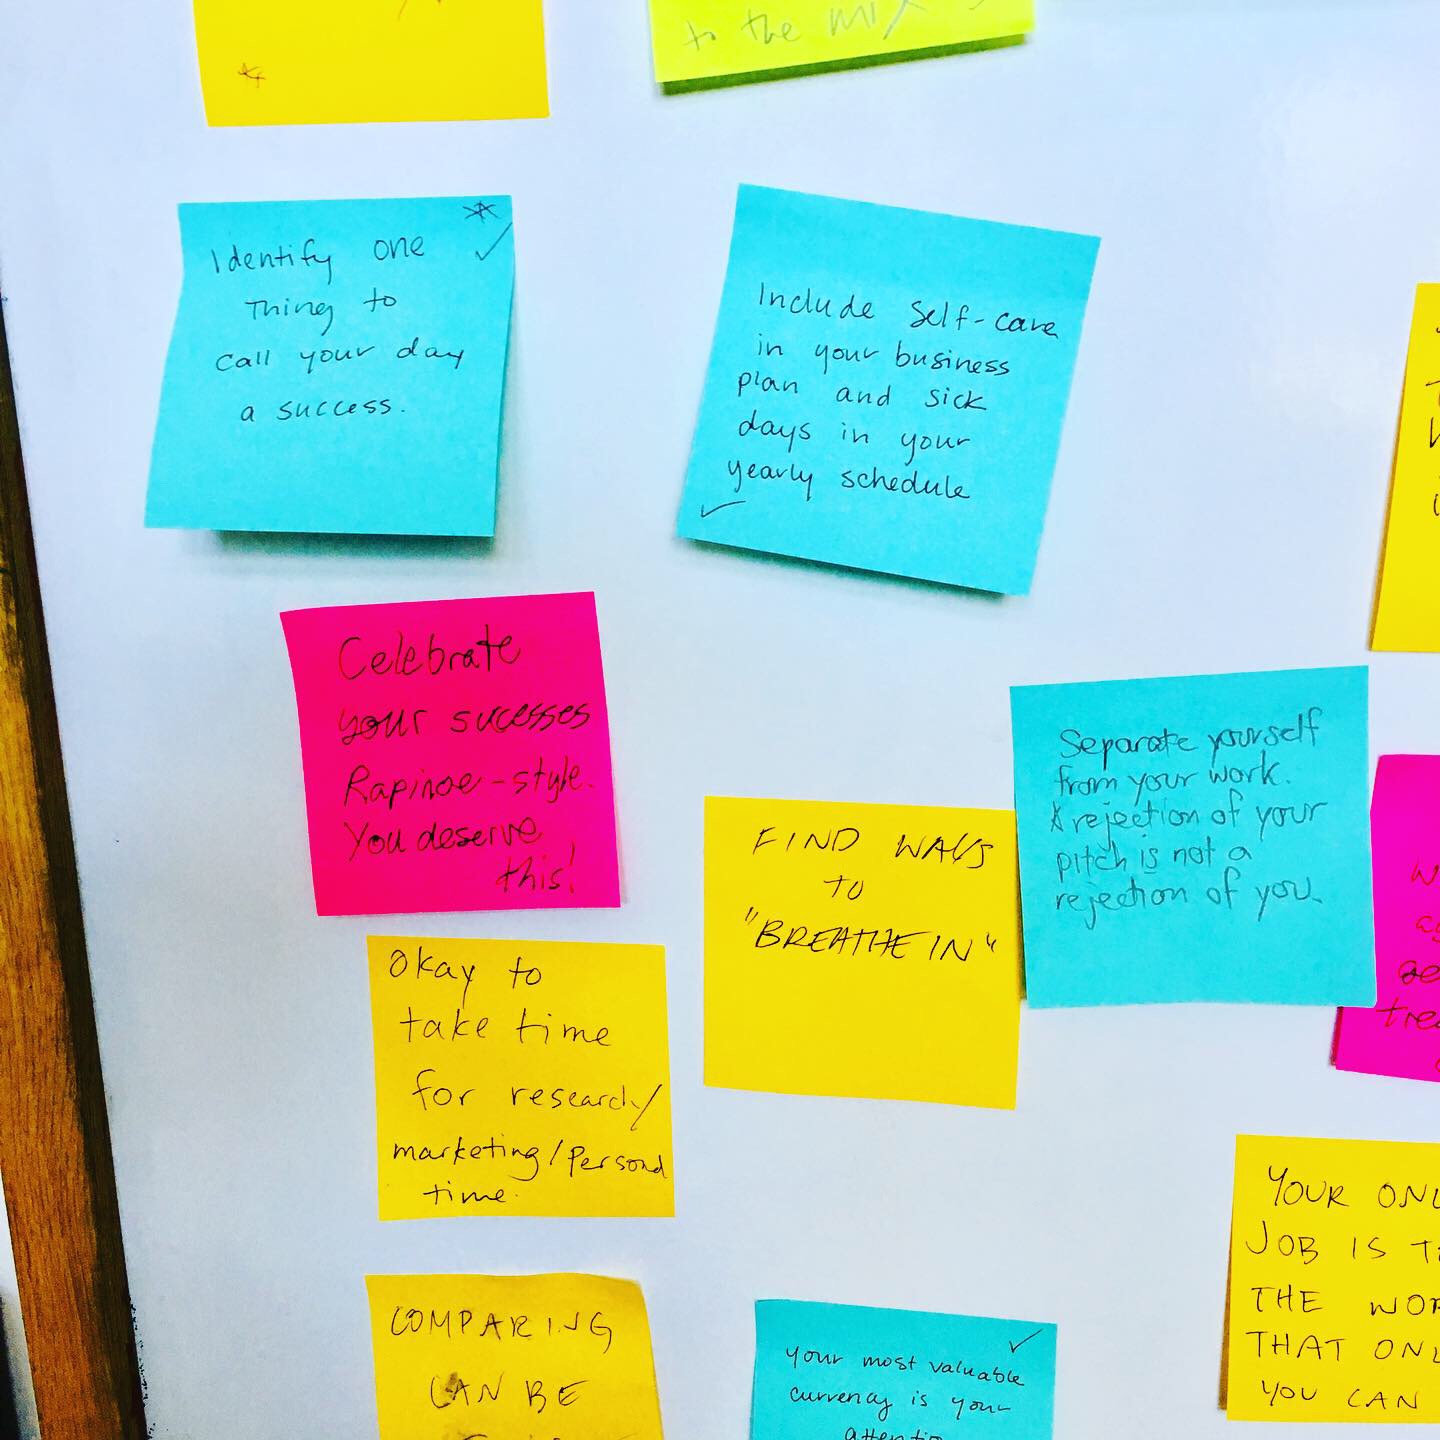 to the mix
Identify one
Thing to
call your day
a success.
Include Self-care
in your business
plan and sick
days in your
yearly schedule
Celebrate
your sucesses
Rapinoe-style.
You deserve
this!
Separate yourself
from your work.
A rejection of your
pitch is not a
rejection of you.
FIND WAYS
TO
"BREATHE IN"
Okay to
take time
for research/
marketing/personal
time.
COMPARING
CAN BE
your most valuable
currency is your
attention
YOUR ONL
JOB IS T
THE WOR
THAT ONL
YOU CAN